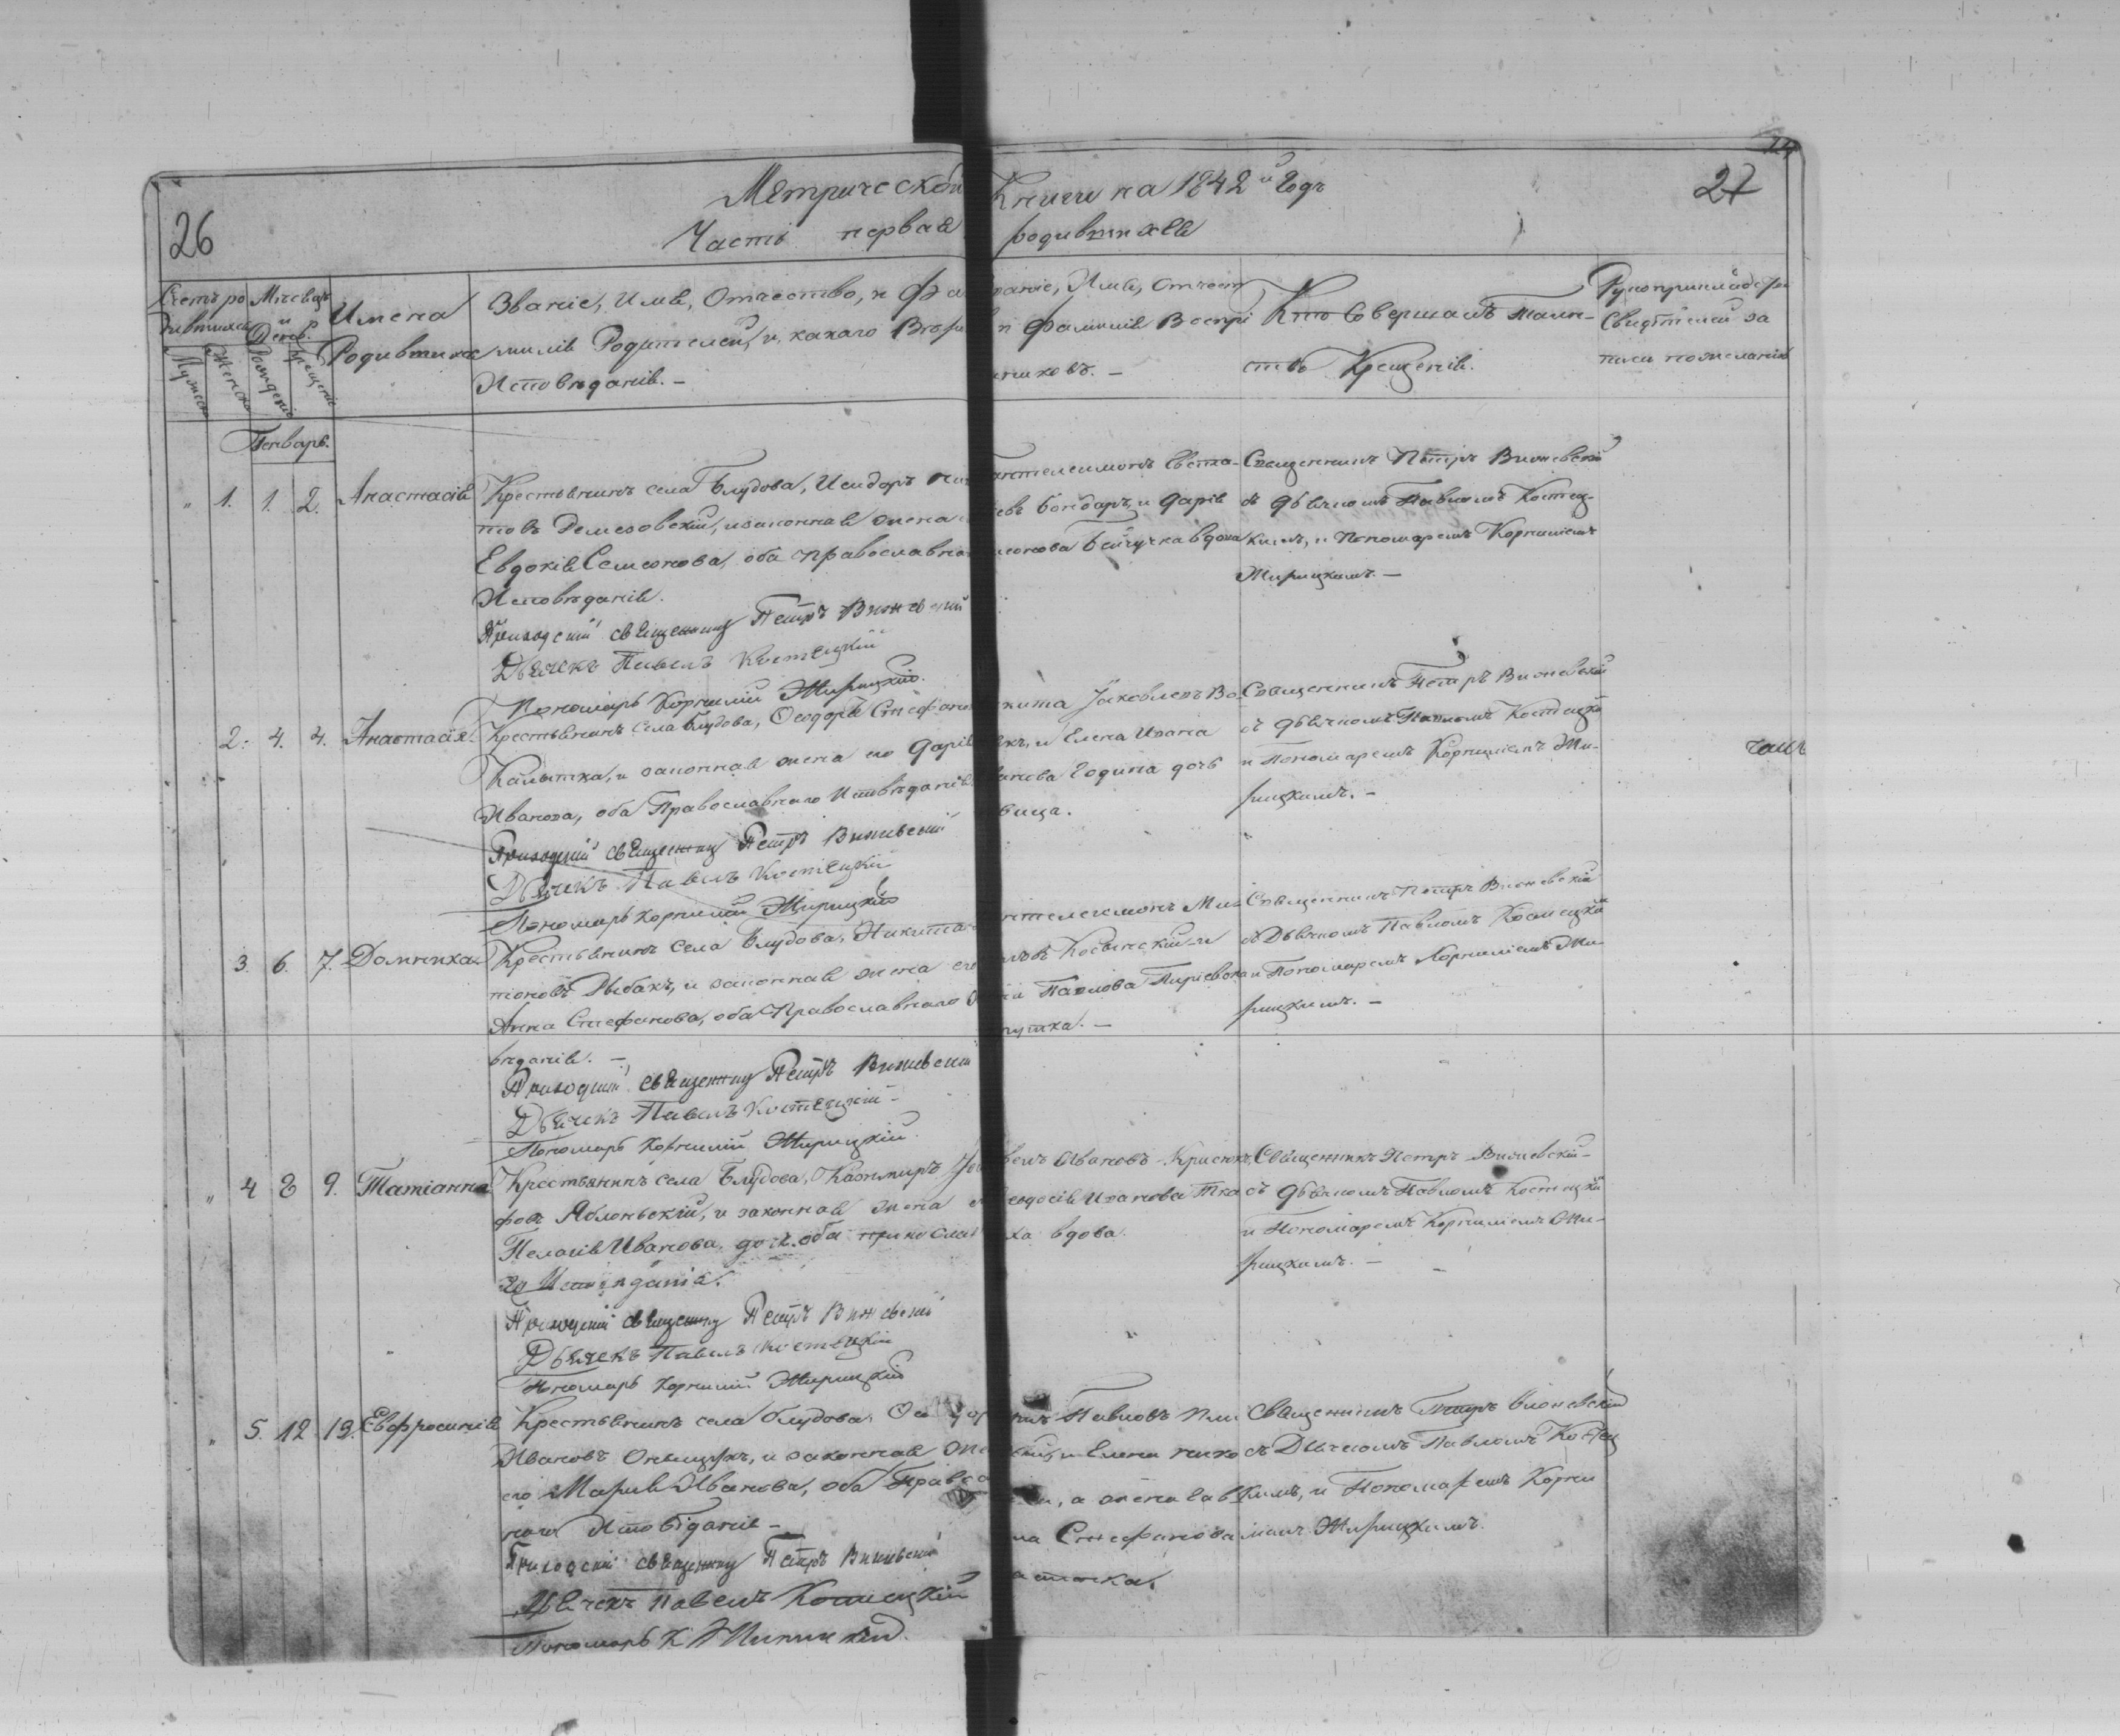 26
Метрической Книги на 1842й Годъ
27
Часть первая родившихся
Счетъ ро
дившихся
Мужеска
Женска
Месяцъ
и
День
Рожденіе
Крещеніе
Имена
Родившихся
Званіе, Имя, Отчество, и Фа
милія Родителей, и какаго Вѣро
Исповѣданія. –
ваніе, Имя, отчест
и фамилія Воспрі
никовъ. –
Кто Совершалъ Таин-
ство Крещенія.
Рукоприкладс
Свидѣтелей за
писи по желанію
Генварь.
" 1. 1. 2. Анастасія
Крестьянинъ села Блудова, Исидоръ
товъ Ремезовскій, и законная жена
Евдокія Семионова, оба православна
Исповѣданія.
Приходскій священникъ Петръ Вижевскій
Дьячекъ Павелъ Костецкій
Пономарь Корнилій Жирицкій.
антелеимонъ Евста-
евъ бондаръ, и Дарія
вдова
Священникъ Петръ Вижевскій
съ Дьячкомъ Павломъ Костец-
кимъ, и Пономаремъ Корниліемъ
Жирицкимъ. –
2. 4. 4. Анастасія.
Крестьянинъ села Блудова, Ѳеодоръ Стефано
Калытка, и законная жена его Дарія
Иванова, оба Православнаго Исповѣданія
Приходскій священникъ Петръ Вижевскій
Дьячекъ Павелъ Костецкій
Пономарь Корнилій Жирицкій
икита Яковлевъ Во-
къ, и Елена Ивана
анова Година дочь
вица.
Священникъ Петръ Вижевскій
съ Дьячкомъ Павломъ Костецки
и Пономаремъ Корниліемъ Жи-
рицкимъ. –
3. 6. 7. Домника
Крестьянинъ села Блудова, Никита
тоновъ Рыбакъ, и законная жена его
Анна Стефанова, оба Православнаго
вѣданія. –
Приходскій священникъ Петръ Вижевскій
Дьячекъ Павелъ Костецкій –
Пономарь Корнилій Жирицкій
нтелеимонъ Ми-
Павлова
Священникъ Петръ Вижевскій
съ Дьячкомъ Павломъ Костецки
и Пономаремъ Корниліемъ Жи-
рицкимъ. –
" 4 8 9. Татіанна
Крестьянинъ села Блудова, Казимиръ
фовъ Яблоньскій, и законная жена
Пелагія Иванова
го Исповѣданія.
Приходскій священникъ Петръ Вижевскій
Дьячекъ Павелъ Костецкій
Пономарь Корнилій Жирицкій
Ивановъ Крисюкъ,
еодосія Иванова Тка
ха вдова.
Священникъ Петръ Вижевскій –
съ Дьячкомъ Павломъ Костецки
и Пономаремъ Корниліемъ Жи-
рицкимъ. –
" 5. 12 13. Евфросинія
Крестьянинъ села Блудова,
Ивановъ Оныщукъ, и законная
его Марія Иванова, оба Правос
наго Исповѣданія –
Приходскій священникъ Петръ Вижевскій
Дьячекъ Павелъ Костецкій
Пономарь К Жирицкій.
Павловъ
и Елена
а жена
на Стефанова
Священникъ Петръ Вижевскій
съ Дьячкомъ Павломъ Костец
кимъ, и Пономаремъ Корни
ліемъ Жирицкимъ.